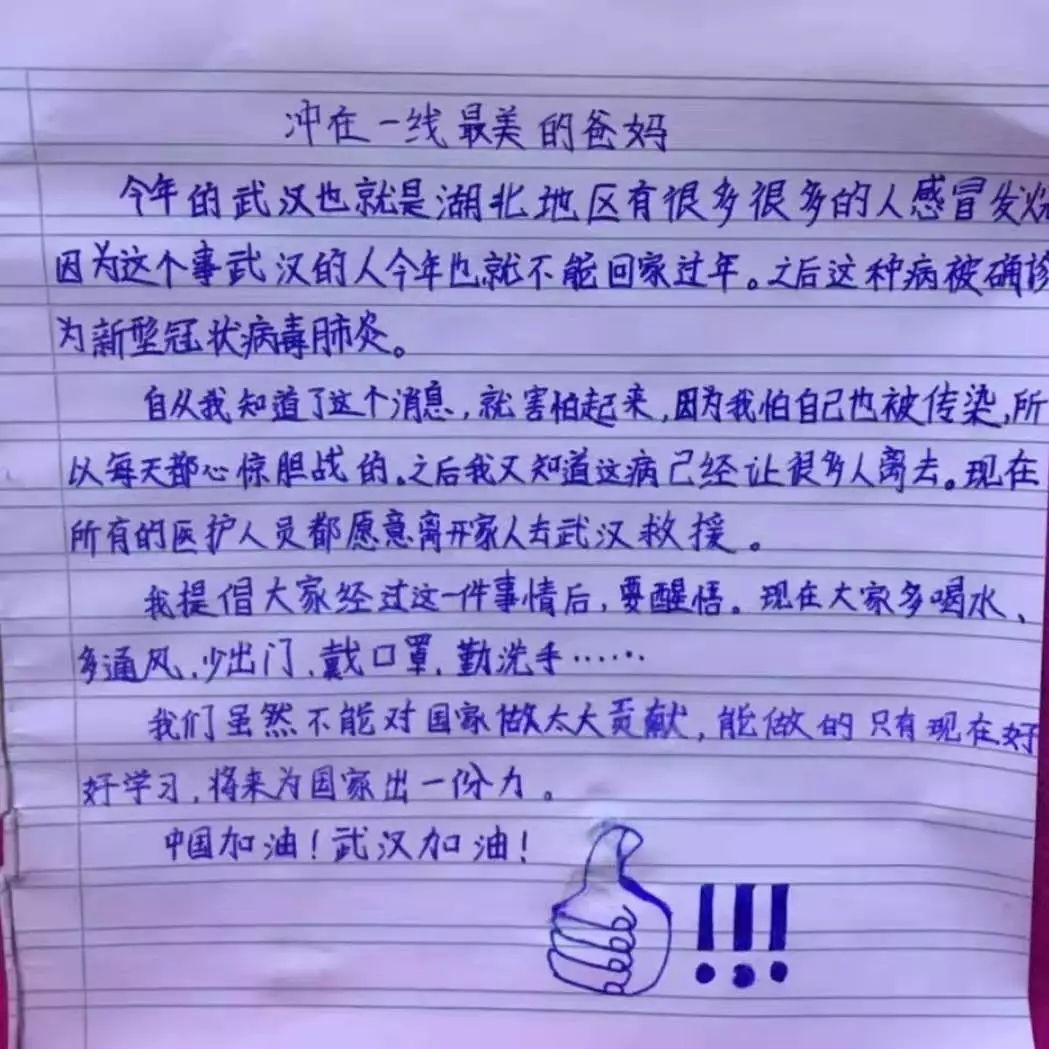 冲在一线最美的爸妈
今年的武汉也就是湖北地区有很多很多的人感冒发烧
因为这个事武汉的人今年也就不能回家过年。之后这种病被确诊
为新型冠状病毒肺炎。
自从我知道了这个消息,就害怕起来,因为我怕自己也被传染,所
以每天都心惊胆战的。之后我又知道这病已经让很多人离去。现在
所有的医护人员都愿意离开家人去武汉救援。
我提倡大家经过这一件事情后,要醒悟。现在大家多喝水、
多通风、少出门、戴口罩、勤洗手……
我们虽然不能对国家做太大贡献,能做的只有现在好
好学习,将来为国家出一份力。
中国加油!武汉加油!
!!!